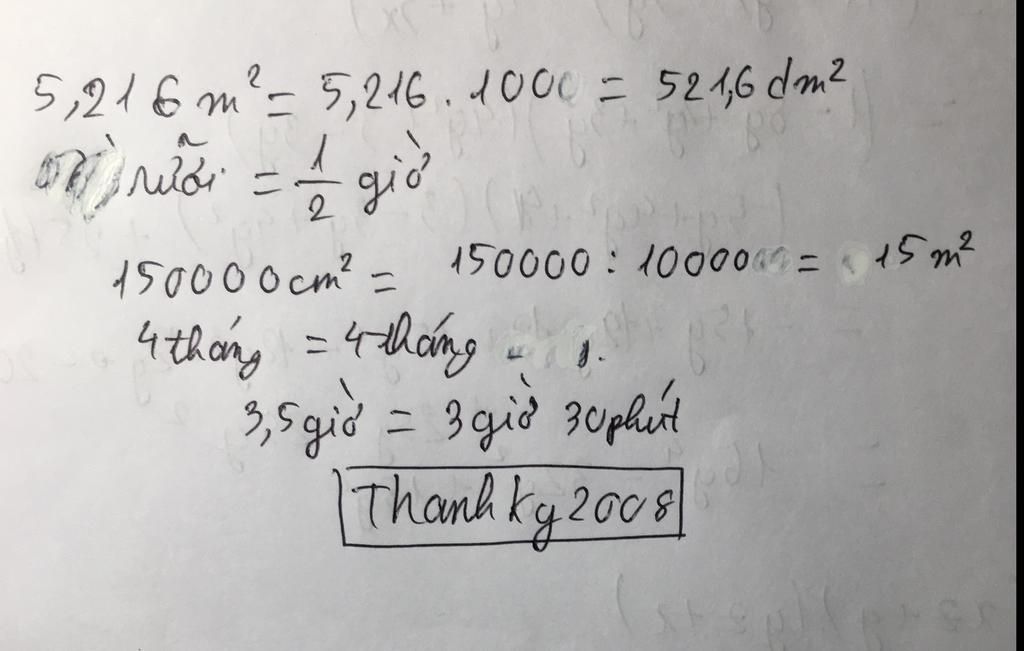 5,216 m² = 5,216 . 100 = 521,6 dm²
rưỡi = 1/2 giờ
150000cm² = 150000 : 10000 = 15 m²
4 tháng = 4 tháng
3,5 giờ = 3 giờ 30 phút
Thanhky2008